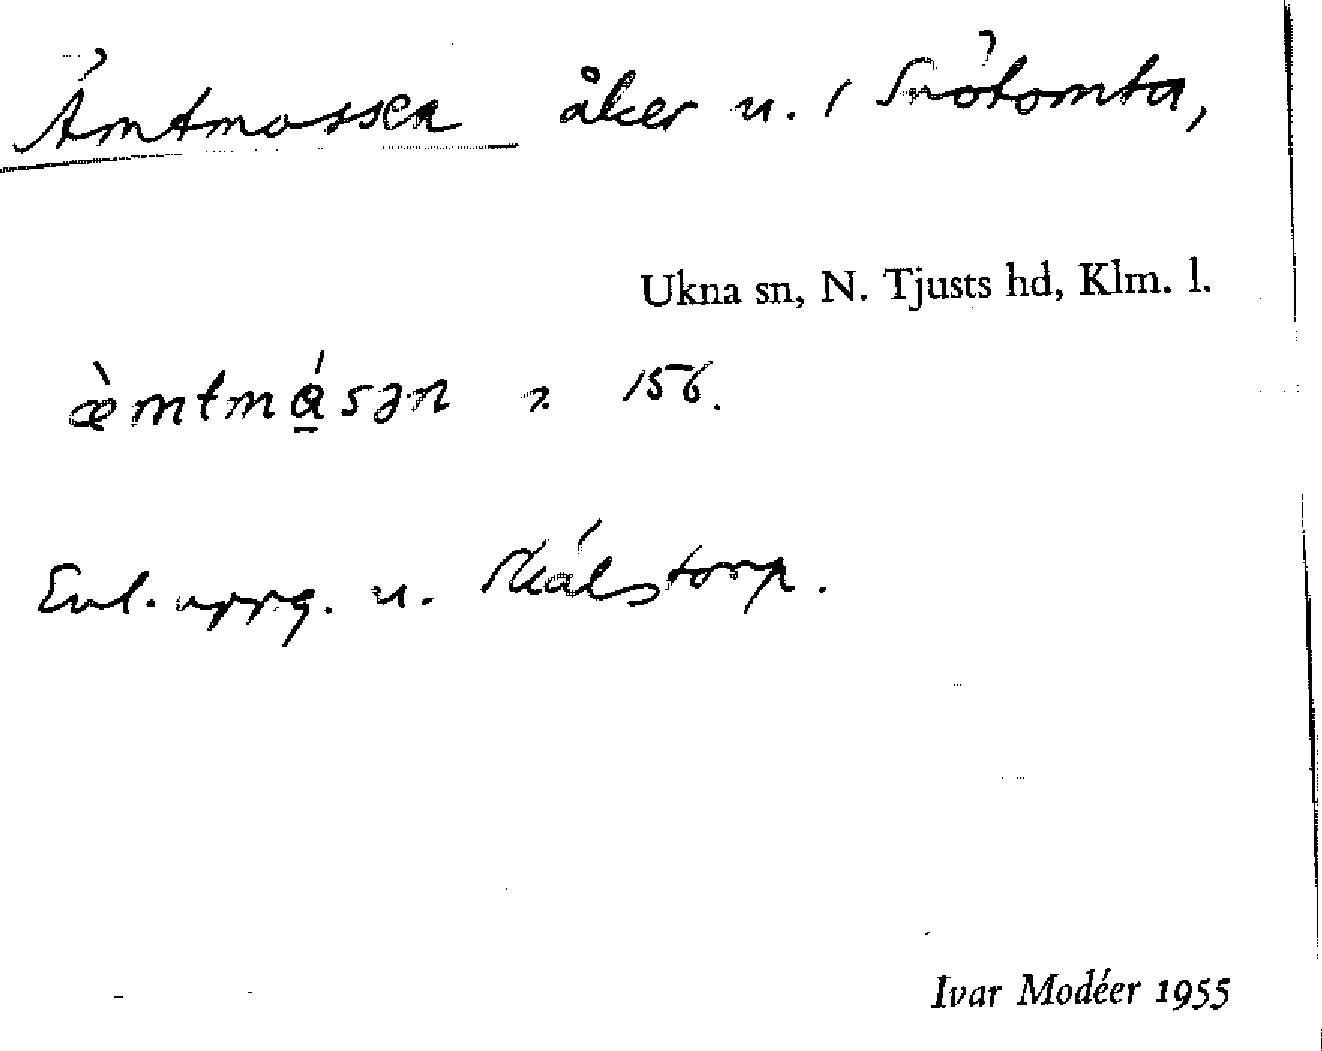 Ämtmossen åker u. Snötomta,
Ukna sn, N. Tjusts hd, Klm. l.
æ̀mtmɑ̱́sən 156.
Enl. uppg. u. Skålstorp.
Ivar Modéer 1955